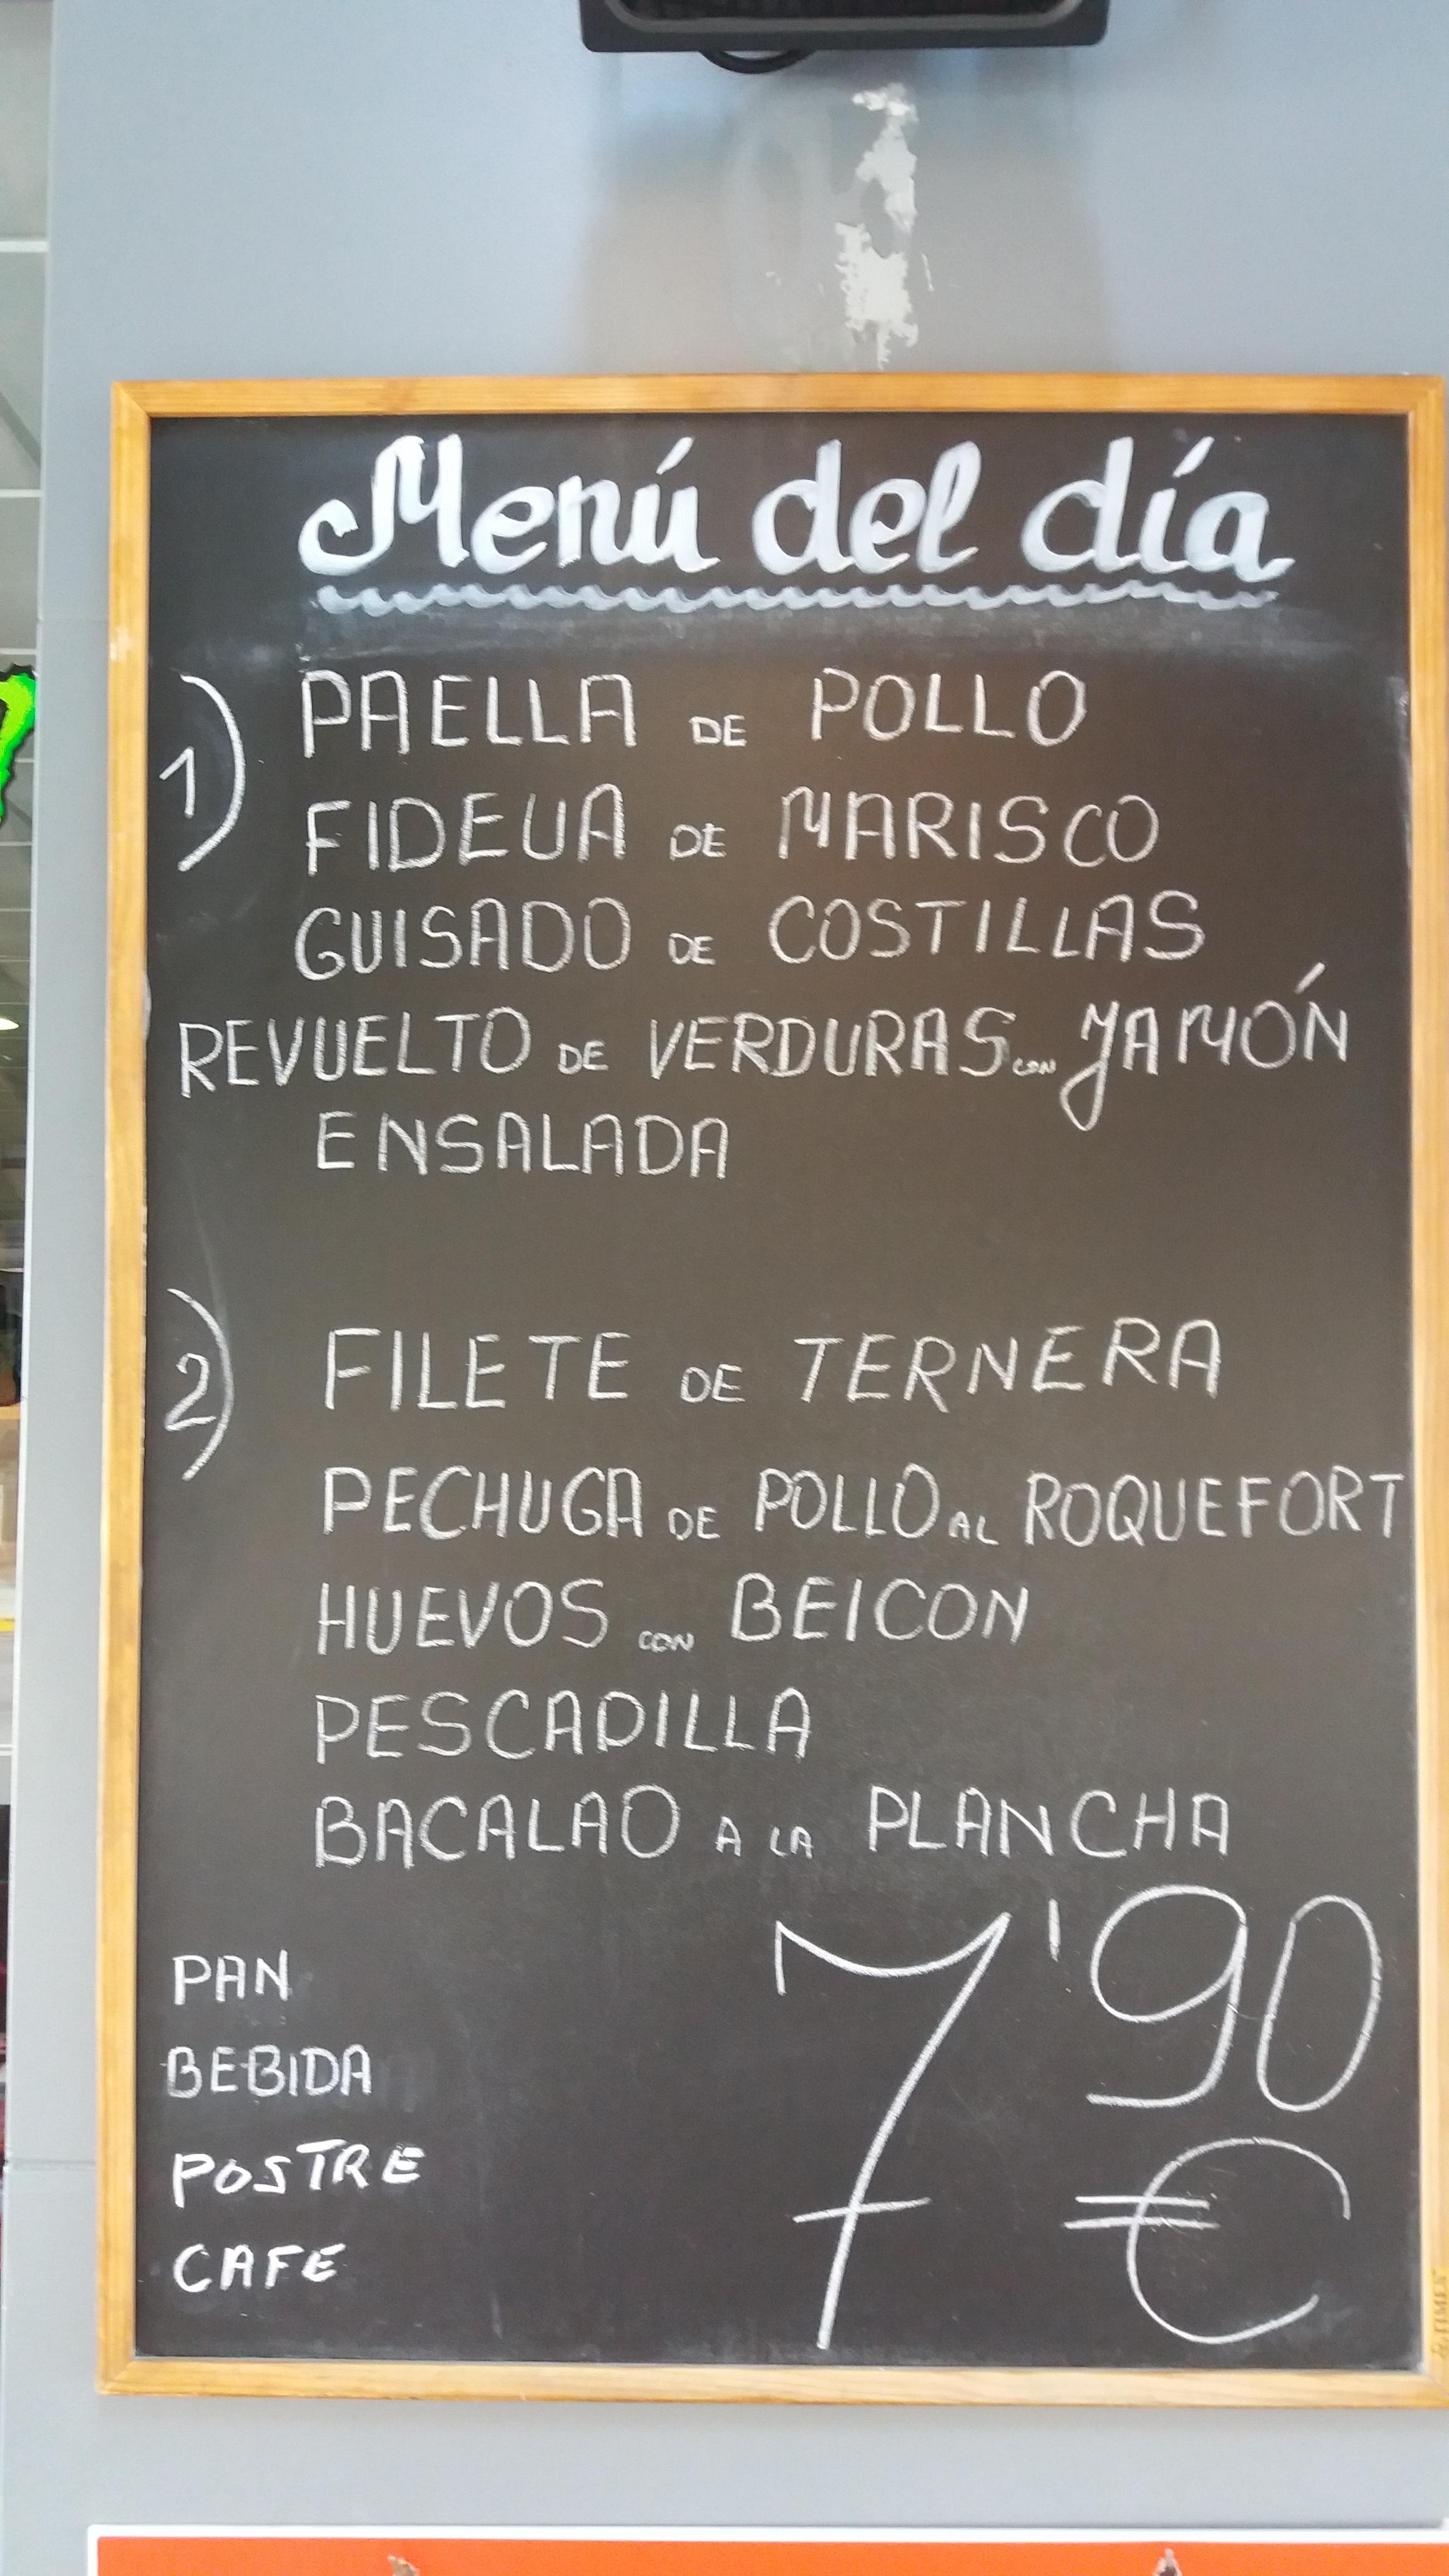 Menú del día
1) PAELLA DE POLLO
FIDEUA DE MARISCO
GUISADO DE COSTILLAS
REVUELTO DE VERDURAS CON JAMÓN
ENSALADA
2) FILETE DE TERNERA
PECHUGA DE POLLO AL ROQUEFORT
HUEVOS CON BEICON
PESCADILLA
BACALAO A LA PLANCHA
PAN
BEBIDA
POSTRE
CAFE
7'90
€